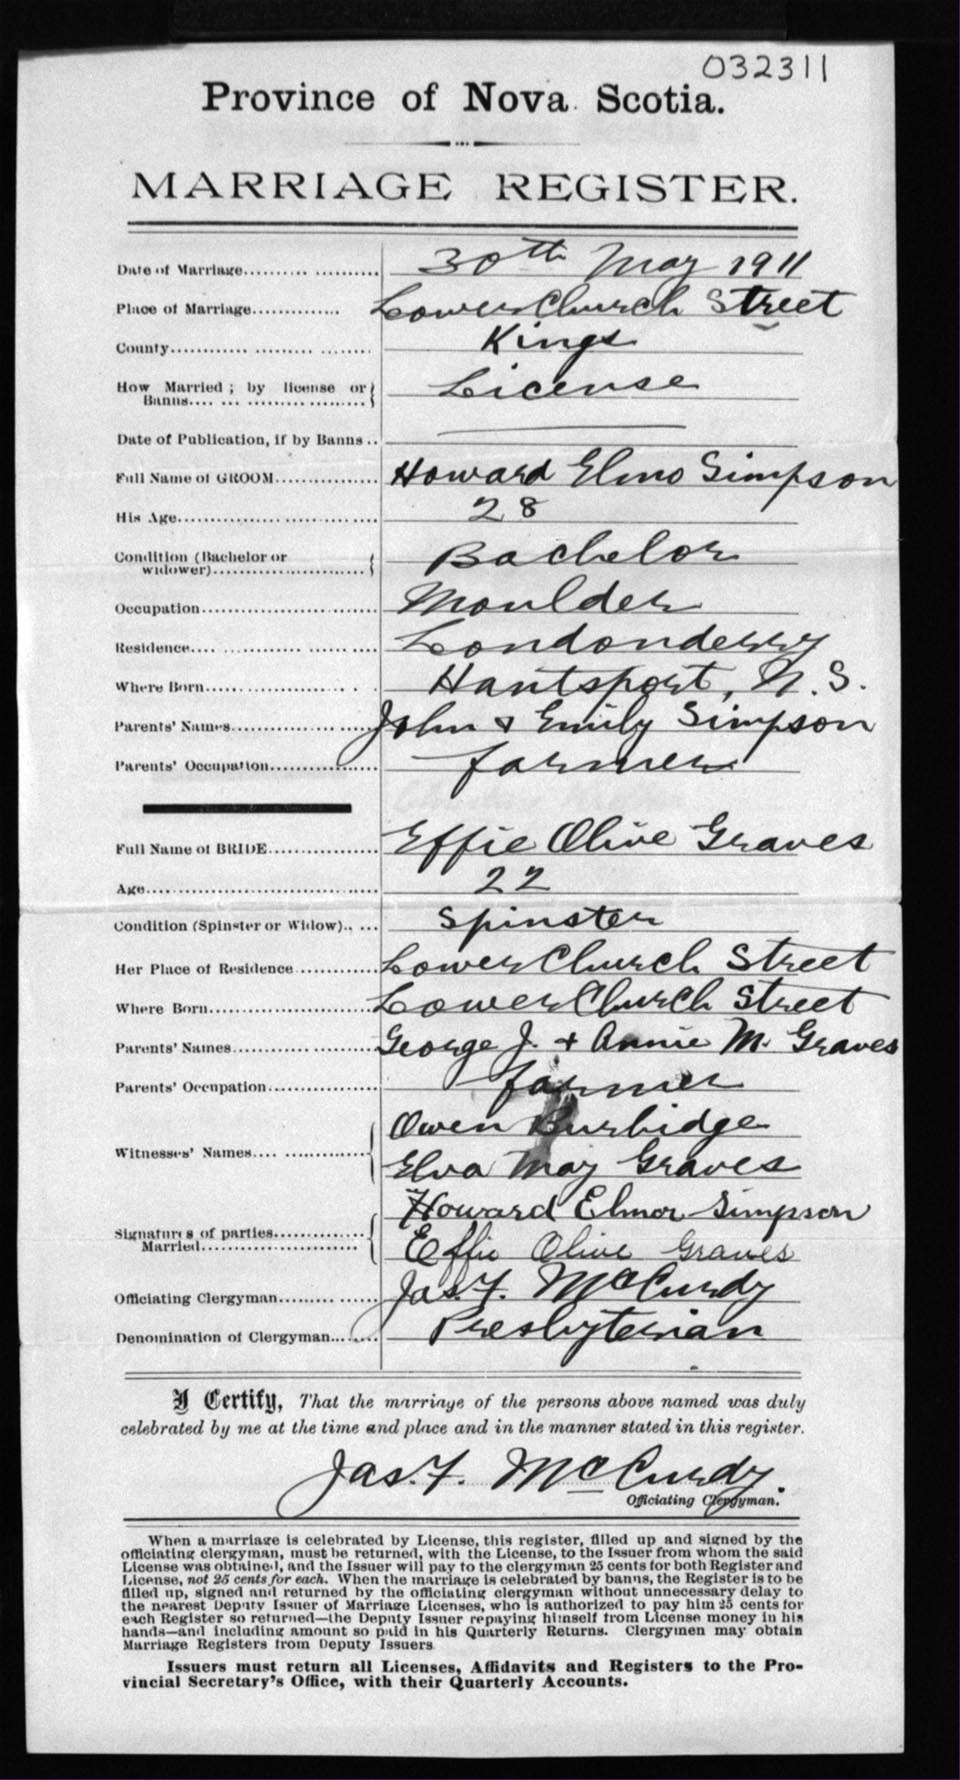 032311
Province of Nova Scotia.
MARRIAGE REGISTER.
Date of Marriage.......... 30th May 1911
Place of Marriage.............. Lower Church Street
County.......... Kings
How Married ; by license or License
Banns..........
Date of Publication, if by Banns ..
Full Name of GROOM................ Howard Elmo Simpson
His Age.......... 28
Condition (Bachelor or Bachelor
widower)..........
Occupation.......... Moulder
Residence.......... Londonderry
Where Born.......... Hantsport, N.S.
Parents' Names.......... John & Emily Simpson
Parents' Occupation.......... farmer
Full Name of BRIDE.......... Effie Olive Graves
Age.......... 22
Condition (Spinster or Widow).. ... Spinster
Her Place of Residence.......... Lower Church Street
Where Born.......... Lower Church Street
Parents' Names.......... George J. + Annie M. Graves
Parents' Occupation.......... farmer
Owen Burbidge
Witnesses' Names..........
Elva May Graves
Howard Elmor Simpson
Signatures of parties..........
Married.......... Effie Olive Graves
Officiating Clergyman.......... Jas. F. McCurdy
Denomination of Clergyman.......... Presbyterian
I Certify, That the marriage of the persons above named was duly
celebrated by me at the time and place and in the manner stated in this register.
Jas. F. McCurdy.
Officiating Clergyman.
When a marriage is celebrated by License, this register, filled up and signed by the
officiating clergyman, must be returned, with the License, to the Issuer from whom the said
License was obtained, and the Issuer will pay to the clergyman 25 cents for both Register and
License, not 25 cents for each. When the marriage is celebrated by banns, the Register is to be
filled up, signed and returned by the officiating clergyman without unnecessary delay to
the nearest Deputy Issuer of Marriage Licenses, who is authorized to pay him 25 cents for
each Register so returned—the Deputy Issuer repaying himself from License money in his
hands—and including amount so paid in his Quarterly Returns. Clergymen may obtain
Marriage Registers from Deputy Issuers
Issuers must return all Licenses, Affidavits and Registers to the Pro-
vincial Secretary's Office, with their Quarterly Accounts.